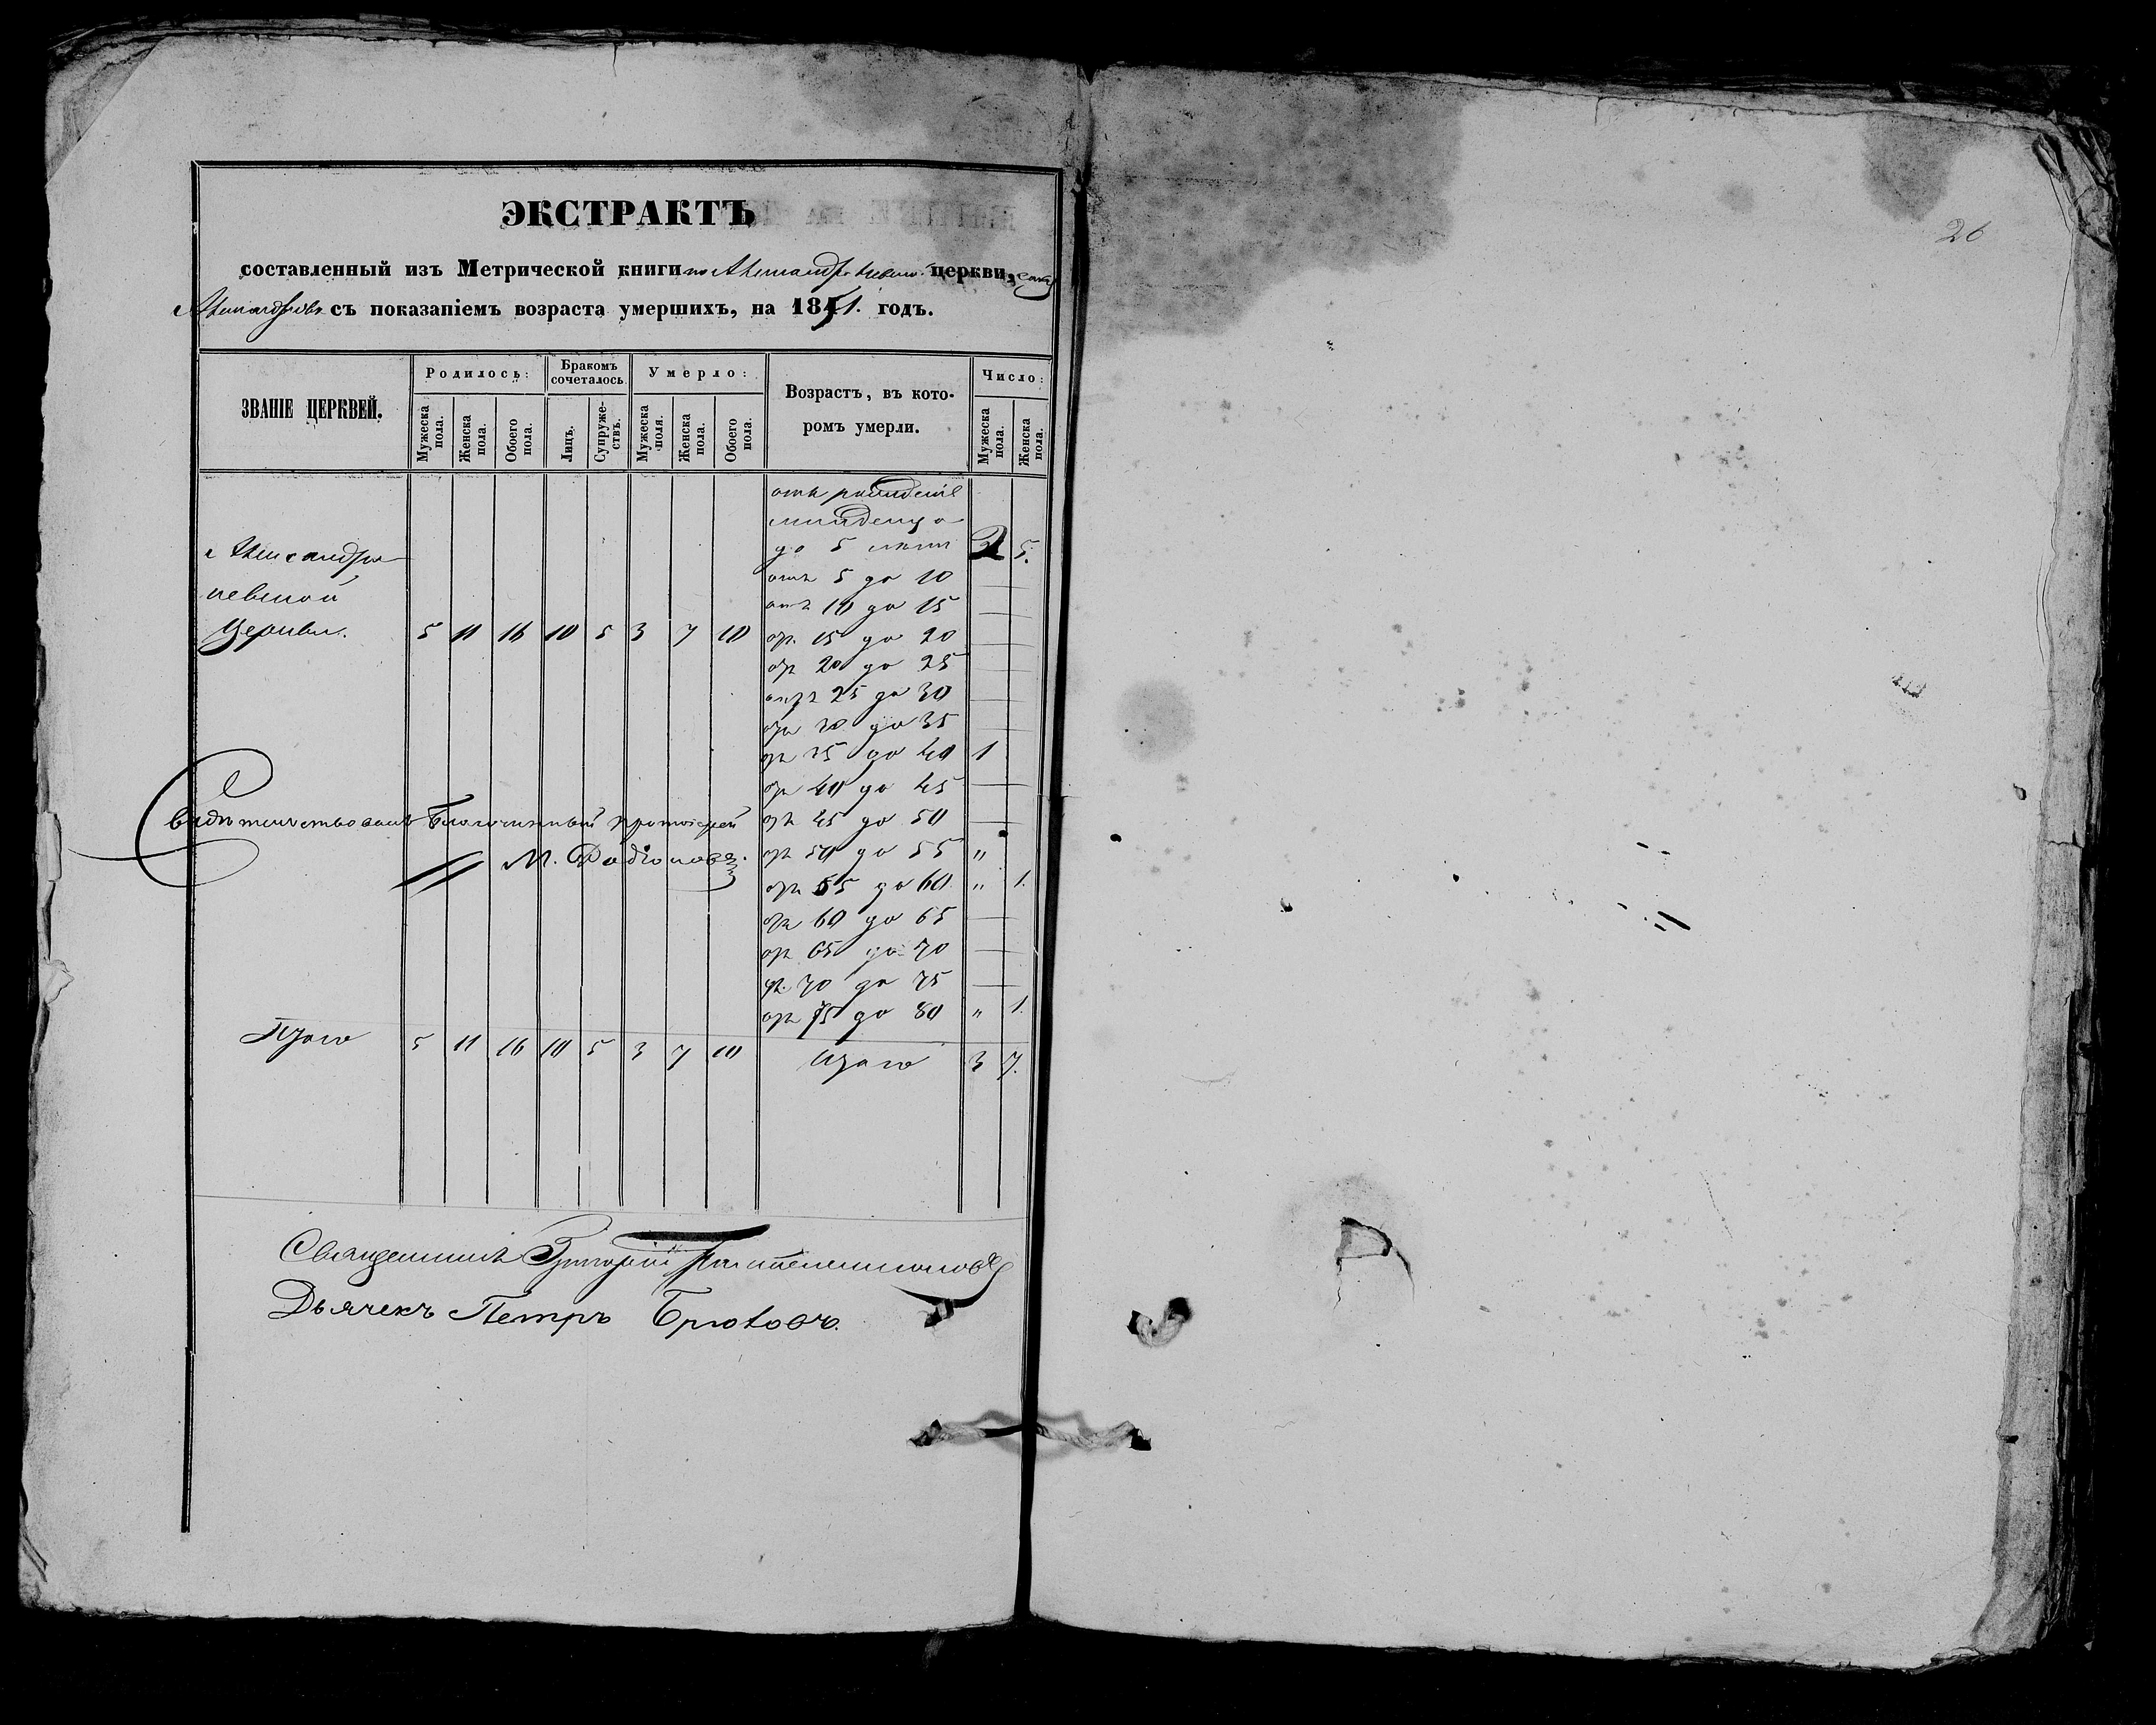 ЭКСТРАКТЪ
составленный изъ Метрической книги по Александро Невской церкви,
съ показаніемъ возраста умершихъ, на 1851. годъ.
ЗВАНІЕ ЦЕРКВЕЙ.
Родилось:
Мужеска пола.
Женска пола.
Обоего пола.
Бракомъ сочеталось
Лицъ.
Супружествъ.
Умерло:
Мужеска поля.
Женска пола.
Обоего пола.
Возрастъ, въ которомъ умерли.
Число:
Мужеска пола.
Женска пола.
отъ рожденія
младенца
до 5 лѣтъ 2 5.
отъ 5 до 10 —
отъ 10 до 15 —
Александро
невской
Церкви. 5 11 16 10 5 3 7 10
отъ 15 до 20 —
отъ 20 до 25 —
отъ 25 до 30 —
отъ 30 до 35 —
отъ 35 до 40 1
отъ 40 до 45 —
отъ 45 до 50 —
отъ 50 до 55 „
отъ 55 до 60. „ 1.
отъ 60 до 65 —
отъ 65 до 70 —
отъ 70 до 75 —
отъ 75 до 80 „ 1.
Свидѣтельствовалъ Благочинный протоіерей
М. Родіоновъ.
Итого 5 11 16 10 5 3 7 10 Итого 3 7.
Священникъ Григорій
Дьячекъ Петръ Брюховъ.
26